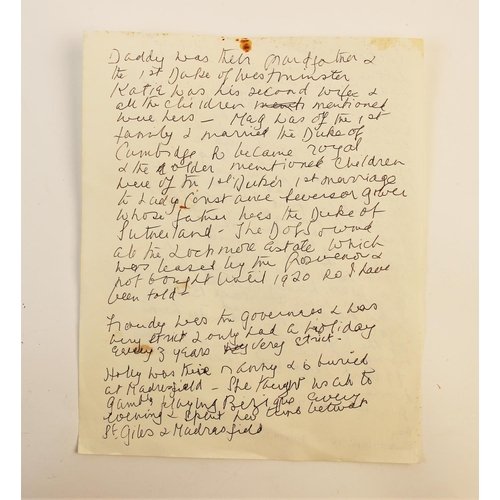 Daddy was their grandfather &
the 1st Duke of Westminster
Katie was his second wife &
all the children mentioned
were hers – Mag was of the 1st
family & married the Duke of
Cambridge & became royal
& the older mentioned children
were of the 1st Duke's 1st marriage
to Lady Constance Leverson Gower
whose father was the Duke of
Sutherland – The DofS owned
all the Lochmore Estate which
was leased by the Grosvenors &
not bought until 1920 so I have
been told –
was the Governess & was
very strict & only had a holiday
every 3 years very strict –
Holly was their nanny & is buried
at Madresfield – She taught us all to
playing Bezique every
evening & spent her time between
St. Giles & Madresfield